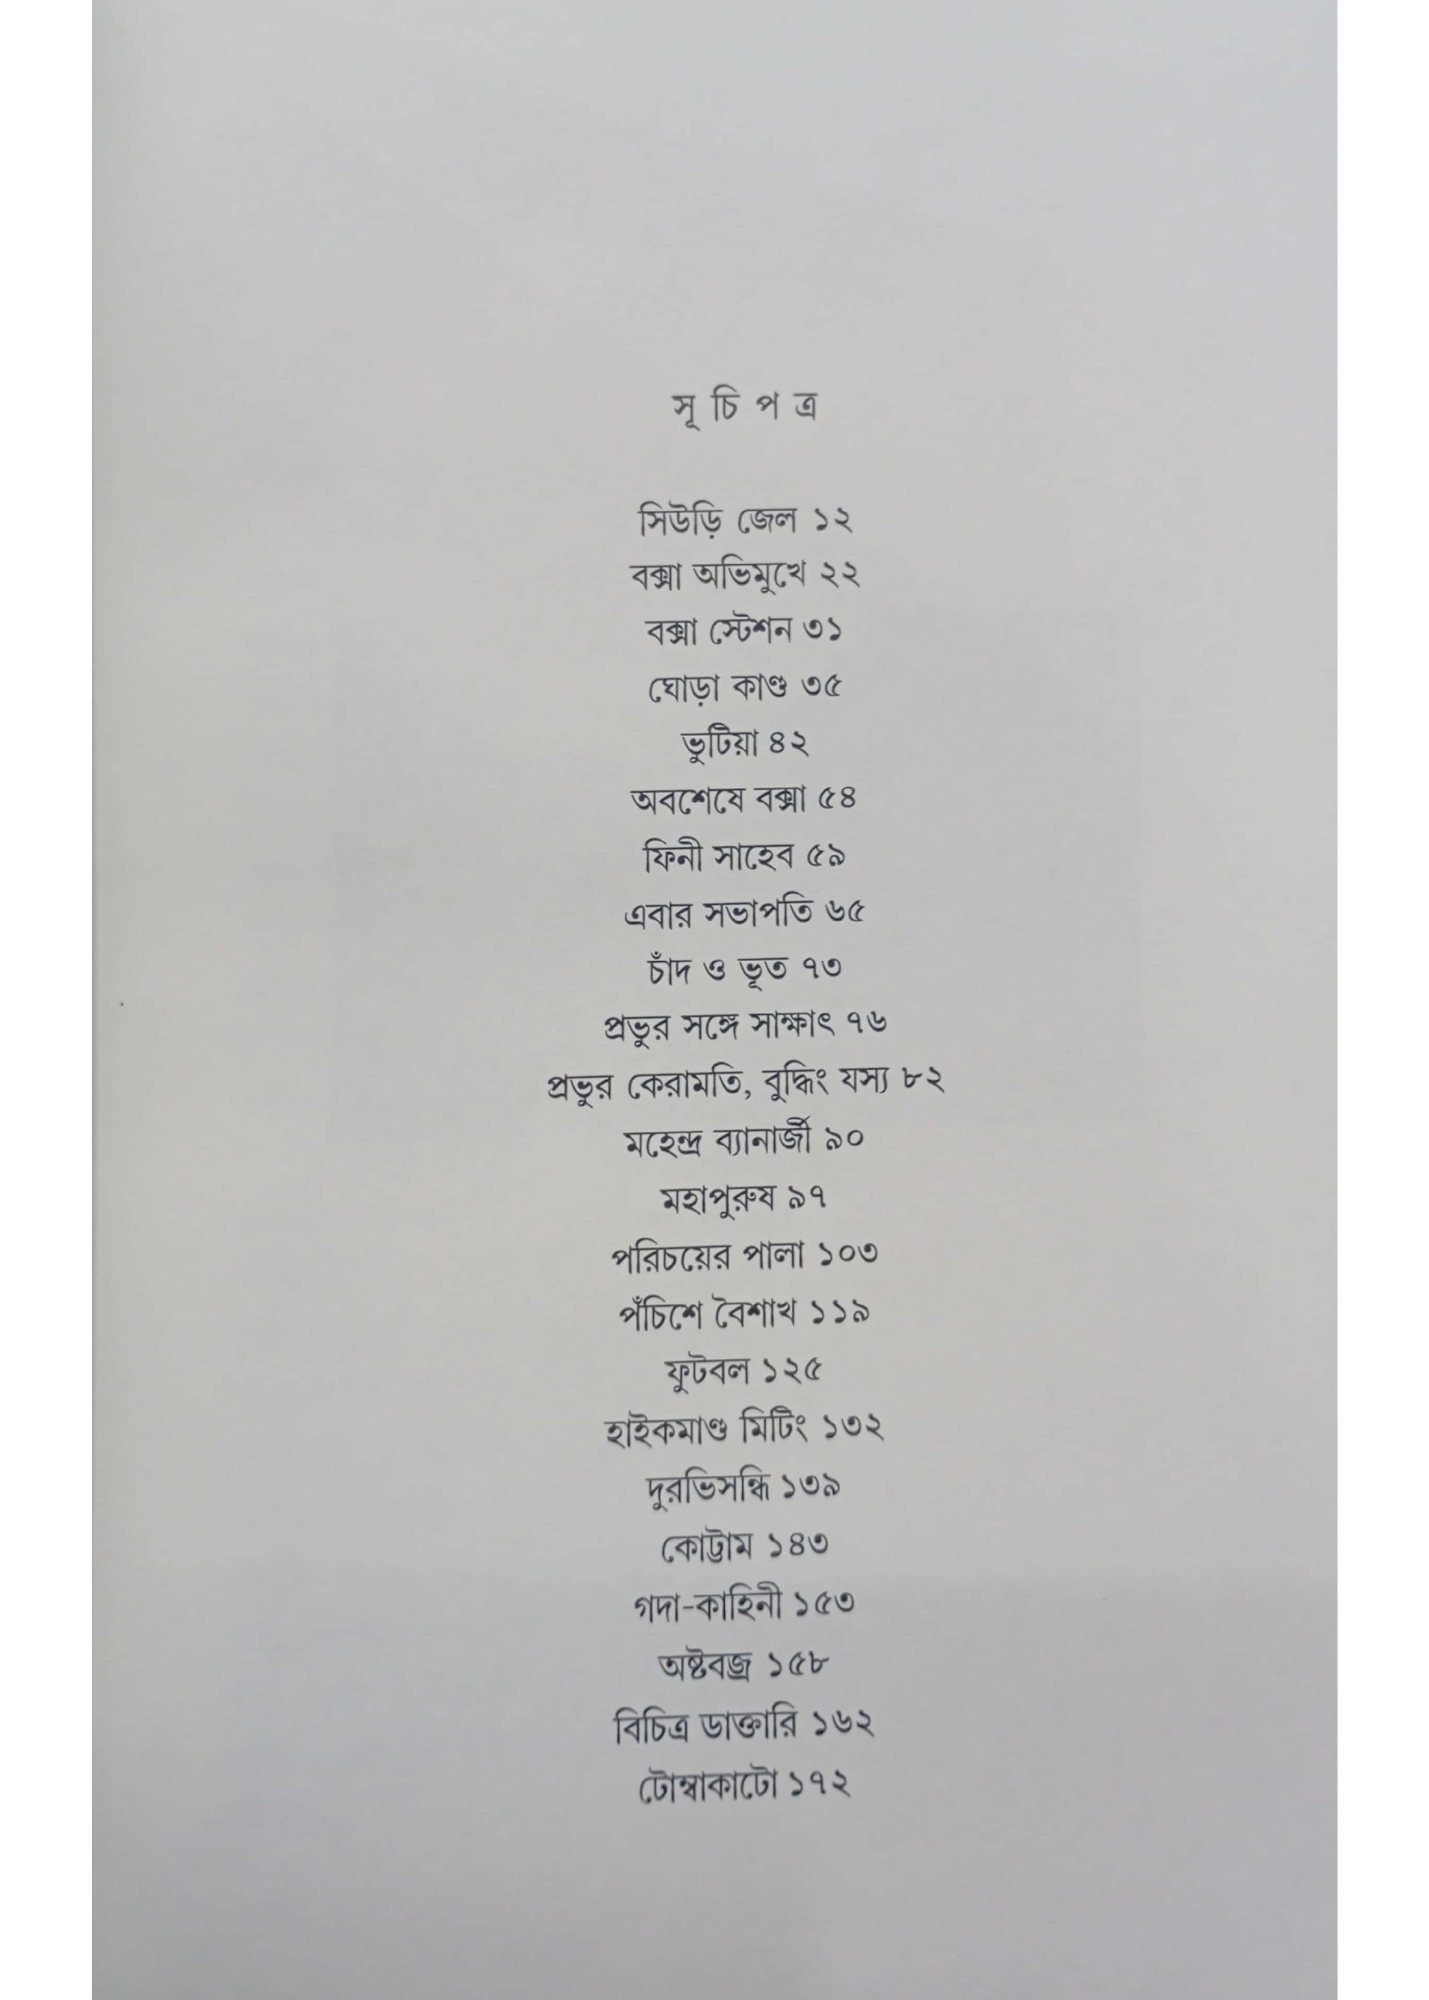 সূ চি প ত্র
সিউড়ি জেল ১২
বক্সা অভিমুখে ২২
বক্সা স্টেশন ৩১
ঘোড়া কাণ্ড ৩৫
ভুটিয়া ৪২
অবশেষে বক্সা ৫৪
ফিনী সাহেব ৫৯
এবার সভাপতি ৬৫
চাঁদ ও ভূত ৭৩
প্রভুর সঙ্গে সাক্ষাৎ ৭৬
প্রভুর কেরামতি, বুদ্ধিং যস্য ৮২
মহেন্দ্র ব্যানার্জী ৯০
মহাপুরুষ ৯৭
পরিচয়ের পালা ১০৩
পঁচিশে বৈশাখ ১১৯
ফুটবল ১২৫
হাইকমাণ্ড মিটিং ১৩২
দুরভিসন্ধি ১৩৯
কোট্টাম ১৪৩
গদা-কাহিনী ১৫৩
অষ্টবজ্র ১৫৮
বিচিত্র ডাক্তারি ১৬২
টোম্বাকাটো ১৭২